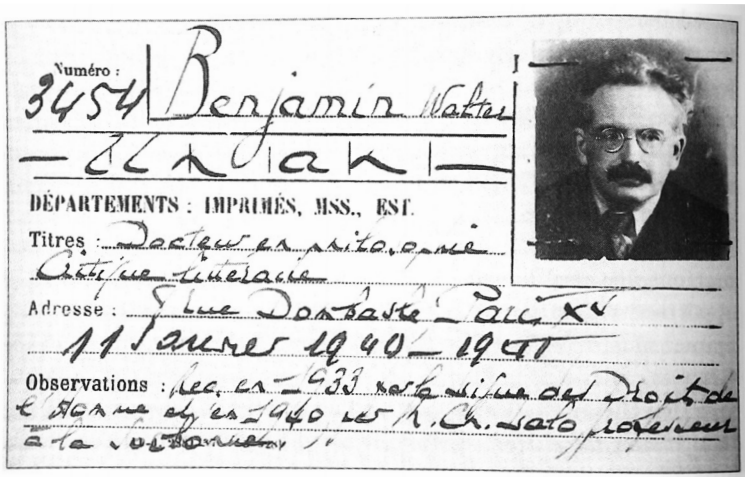 Numéro :
3454
Benjamin Walter
— Un an —
DÉPARTEMENTS : IMPRIMÉS, MSS., EST.
Titres : Docteur en philosophie
Critique littéraire
Adresse : rue Dombasle Paris XV
11 Janvier 1940 - 1941
Observations : Rec. en 1933 par la Ligue des Droits de
l'Homme et en 1940 par professeur
à la Sorbonne.